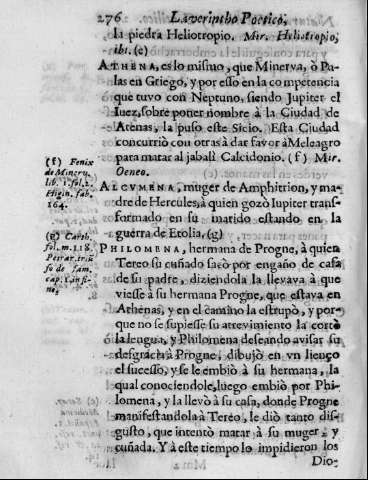 276 Laverintho Poetico,
la piedra Heliotropio. Mir. Heliotropio,
ibi. (e)
ATHENA, es lo mismo, que Minerva, ò Pa-
las en Griego, y por esso en la competencia
que tuvo con Neptuno, siendo Jupiter el
Iuez, sobre poner nombre à la Ciudad de
Atenas, la puso este Sicio. Esta Ciudad
concurriò con otras à dar favor à Meleagro
para matar al jabalì Calcidonio. (f) Mir.
Oeneo.
(f) Fenix
de Mineru.
lib. 1. fol. 2.
Higin. fab.
164.
ALCVMENA, muger de Amphitrion, y ma-
dre de Hercules, à quien gozò Iupiter trans-
formado en su marido estando en la
guerra de Etolia. (g)
(g) Carth.
fol. m. 118.
Petrar.
fo de fam.
cap.
PHILOMENA, hermana de Progne, à quien
Tereo su cuñado sacò por engaño de casa
de su padre, diziendola llevava à que
viesse à su hermana Progne, que estava en
Athenas, y en el camino la estrupò, y por-
que no se supiesse su atrevimiento la cortò
la lengua, y Philomena deseando avisar su
desgracia à Progne, dibujò en vn lienço
el sucesso, y se le embiò à su hermana, la
qual conociendole, luego embiò por Phi-
lomena, y la llevò à su casa, donde Progne
manifestandola à Tereo, le diò tanto dis-
gusto, que intentò matar à su muger, y
cuñada. Y à este tiempo lo impidieron los
Dio-